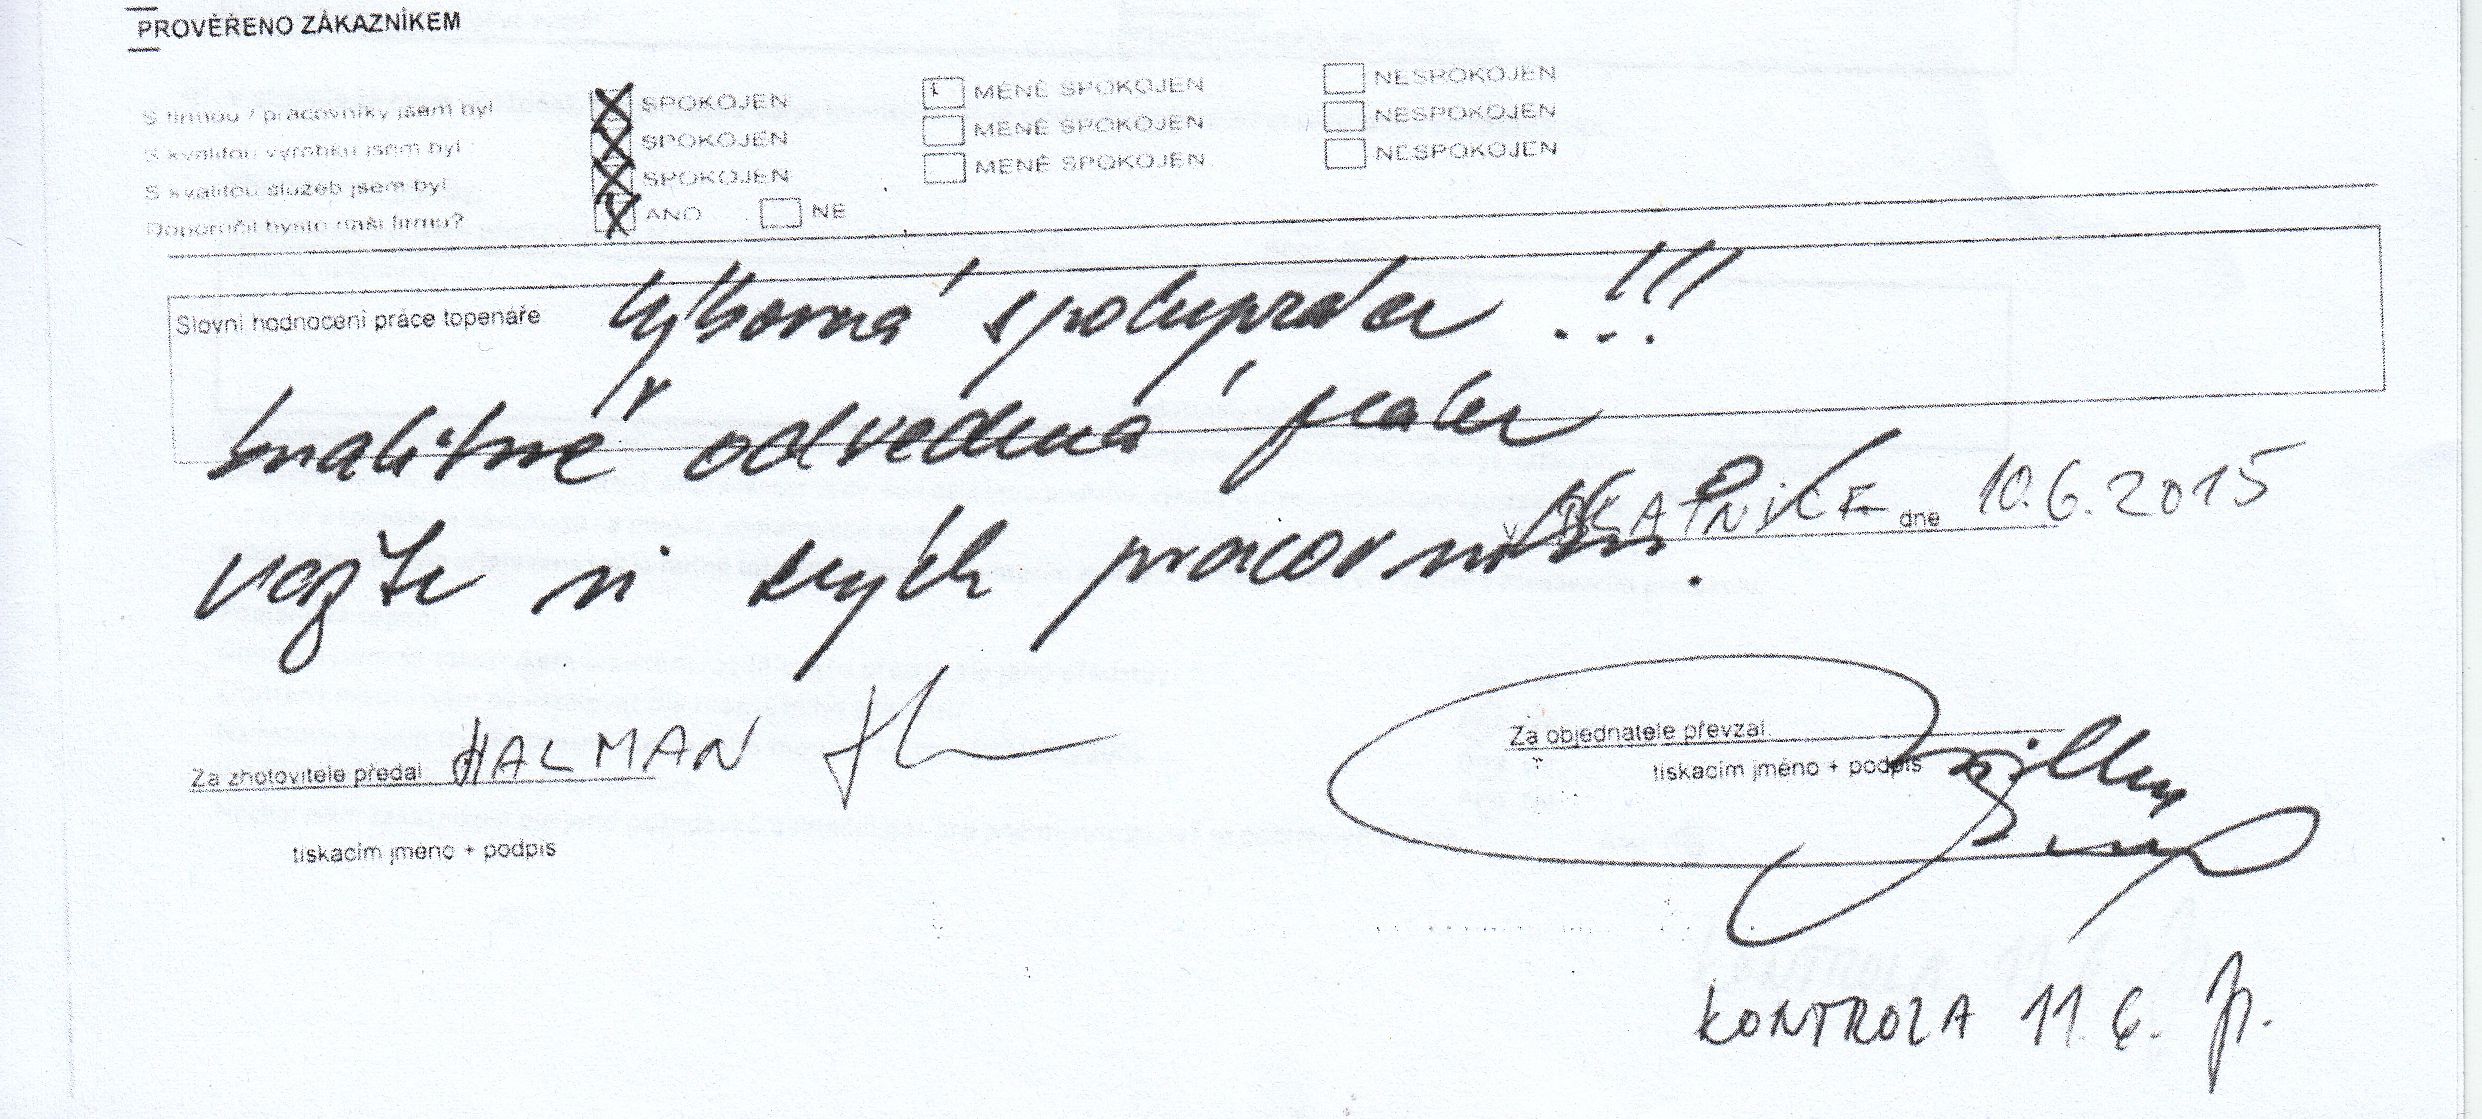 PROVĚŘENO ZÁKAZNÍKEM
S firmou / pracovníky jsem byl SPOKOJEN MÉNĚ SPOKOJEN NESPOKOJEN
S kvalitou výrobků jsem byl SPOKOJEN MÉNĚ SPOKOJEN NESPOKOJEN
S kvalitou služeb jsem byl SPOKOJEN MÉNĚ SPOKOJEN NESPOKOJEN
Doporučil byste naši firmu? ANO NE
Slovní hodnocení práce topenáře Výborná spolupráce !!!
kvalitně odvedená práce
v dne 10.6.2015
važte si svých pracovníků.
Za zhotovitele předal HALMAN
tiskacím jméno + podpis
Za objednatele převzal
tiskacím jméno + podpis
KONTROLA 11.6.